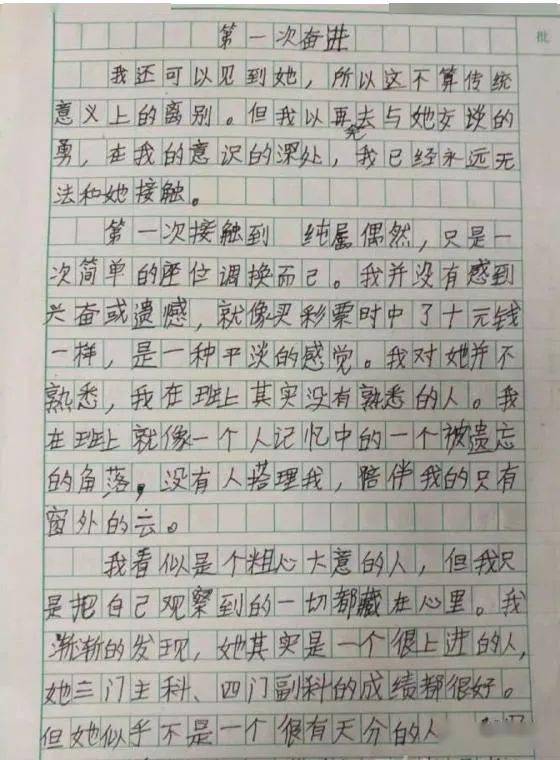 批
第一次奋进
我还可以见到她，所以这不算传统
意义上的离别。但我以再去与她交谈的
勇，在我的意识的深处，我已经永远无
法和她接触。
第一次接触到 纯属偶然，只是一
次简单的座位调换而已。我并没有感到
兴奋或遗憾，就像买彩票时中了十元钱
一样，是一种平淡的感觉。我对她并不
熟悉，我在班上其实没有熟悉的人。我
在班上就像一个人记忆中的一个被遗忘
的角落，没有人搭理我，陪伴我的只有
窗外的云。
我看似是个粗心大意的人，但我只
是把自己观察到的一切都藏在心里。我
渐渐的发现，她其实是一个很上进的人，
她三门主科、四门副科的成绩都很好。
但她似乎不是一个很有天分的人